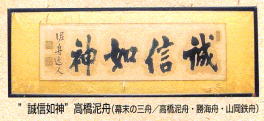 誠信如神
泥舟逸人
"誠信如神" 高橋泥舟(幕末の三舟/高橋泥舟・勝海舟・山岡鉄舟)